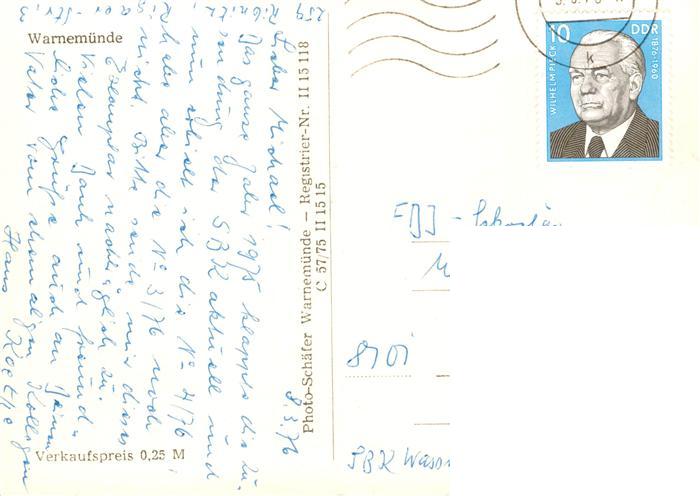 Warnemünde
Lieber Michael!
8.3.76
Das ganze Jahr 1975 klappte die Zu-
sendung der SBK aktuell und
nun erhielt ich die No 4/76
habe aber die No 3/76 noch
nicht. Bitte sende mir dieses
Exemplar nachträglich zu.
Vielen Dank und freund-
liche Grüße auch an Deinen
Vater vom ehemaligen Kollegen
Hans
259 Ribnitz
Verkaufspreis 0,25 M
Photo-Schäfer Warnemünde — Registrier-Nr. II 15 118
C 57/75 II 15 15
k
10
DDR
1876-1960
WILHELM PIECK
FDJ -
8101
SBK